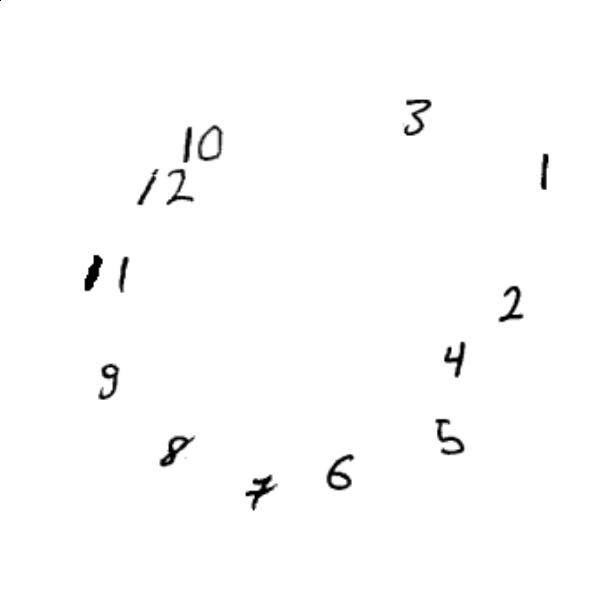 3
10
1
12
11
2
4
9
5
8
6
7